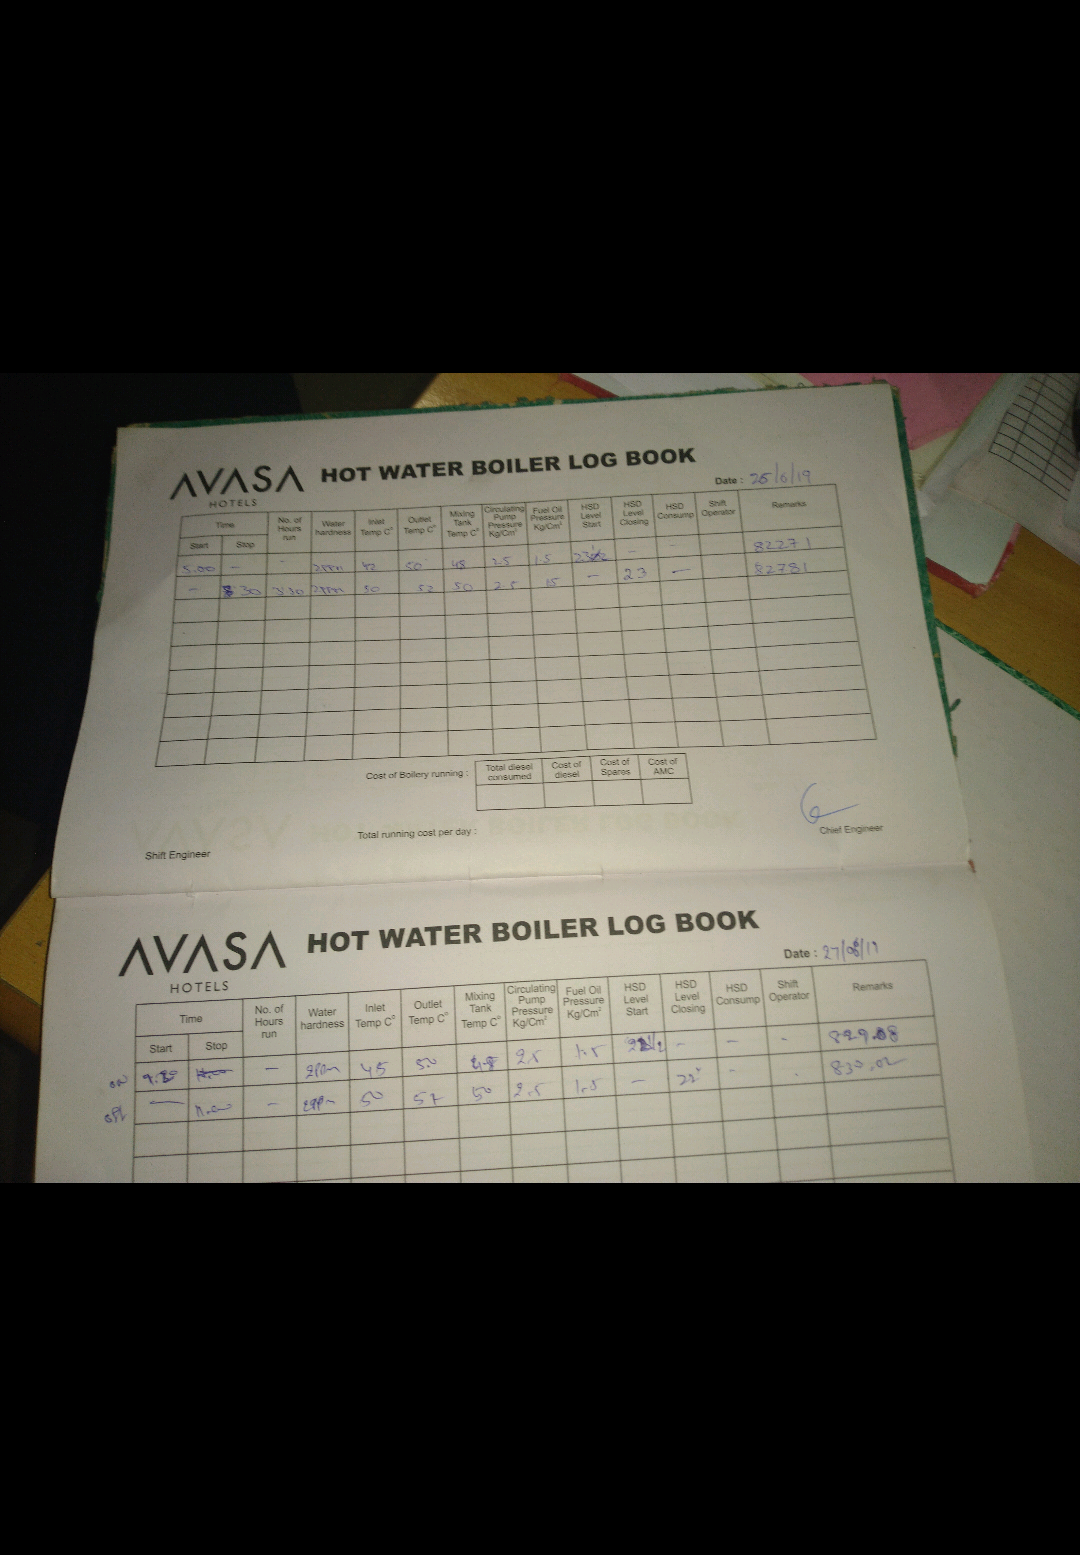 AVASA HOTELS HOT WATER BOILER LOG BOOK
Date : 25/6/19
Time No. of Hours run Water hardness Inlet Temp C° Outlet Temp C° Mixing Tank Temp C° Circulating Pump Pressure Kg/Cm² Fuel Oil Pressure Kg/Cm² HSD Level Start HSD Level Closing HSD Consump Shift Operator Remarks
Start Stop
5.00 - - 42 50 48 2.5 1.5 - - 82271
- 30 50 52 50 2.5 15 - 23 - 82781
Cost of Boilery running : Total diesel consumed Cost of diesel Cost of Spares Cost of AMC
Total running cost per day :
Shift Engineer Chief Engineer
AVASA HOTELS HOT WATER BOILER LOG BOOK
Date : 27/06/19
Time No. of Hours run Water hardness Inlet Temp C° Outlet Temp C° Mixing Tank Temp C° Circulating Pump Pressure Kg/Cm² Fuel Oil Pressure Kg/Cm² HSD Level Start HSD Level Closing HSD Consump Shift Operator Remarks
Start Stop
ON - 45 50 48 2.5 1.5 - - - 829.08
- - 50 57 50 2.5 1.5 - - 830.02